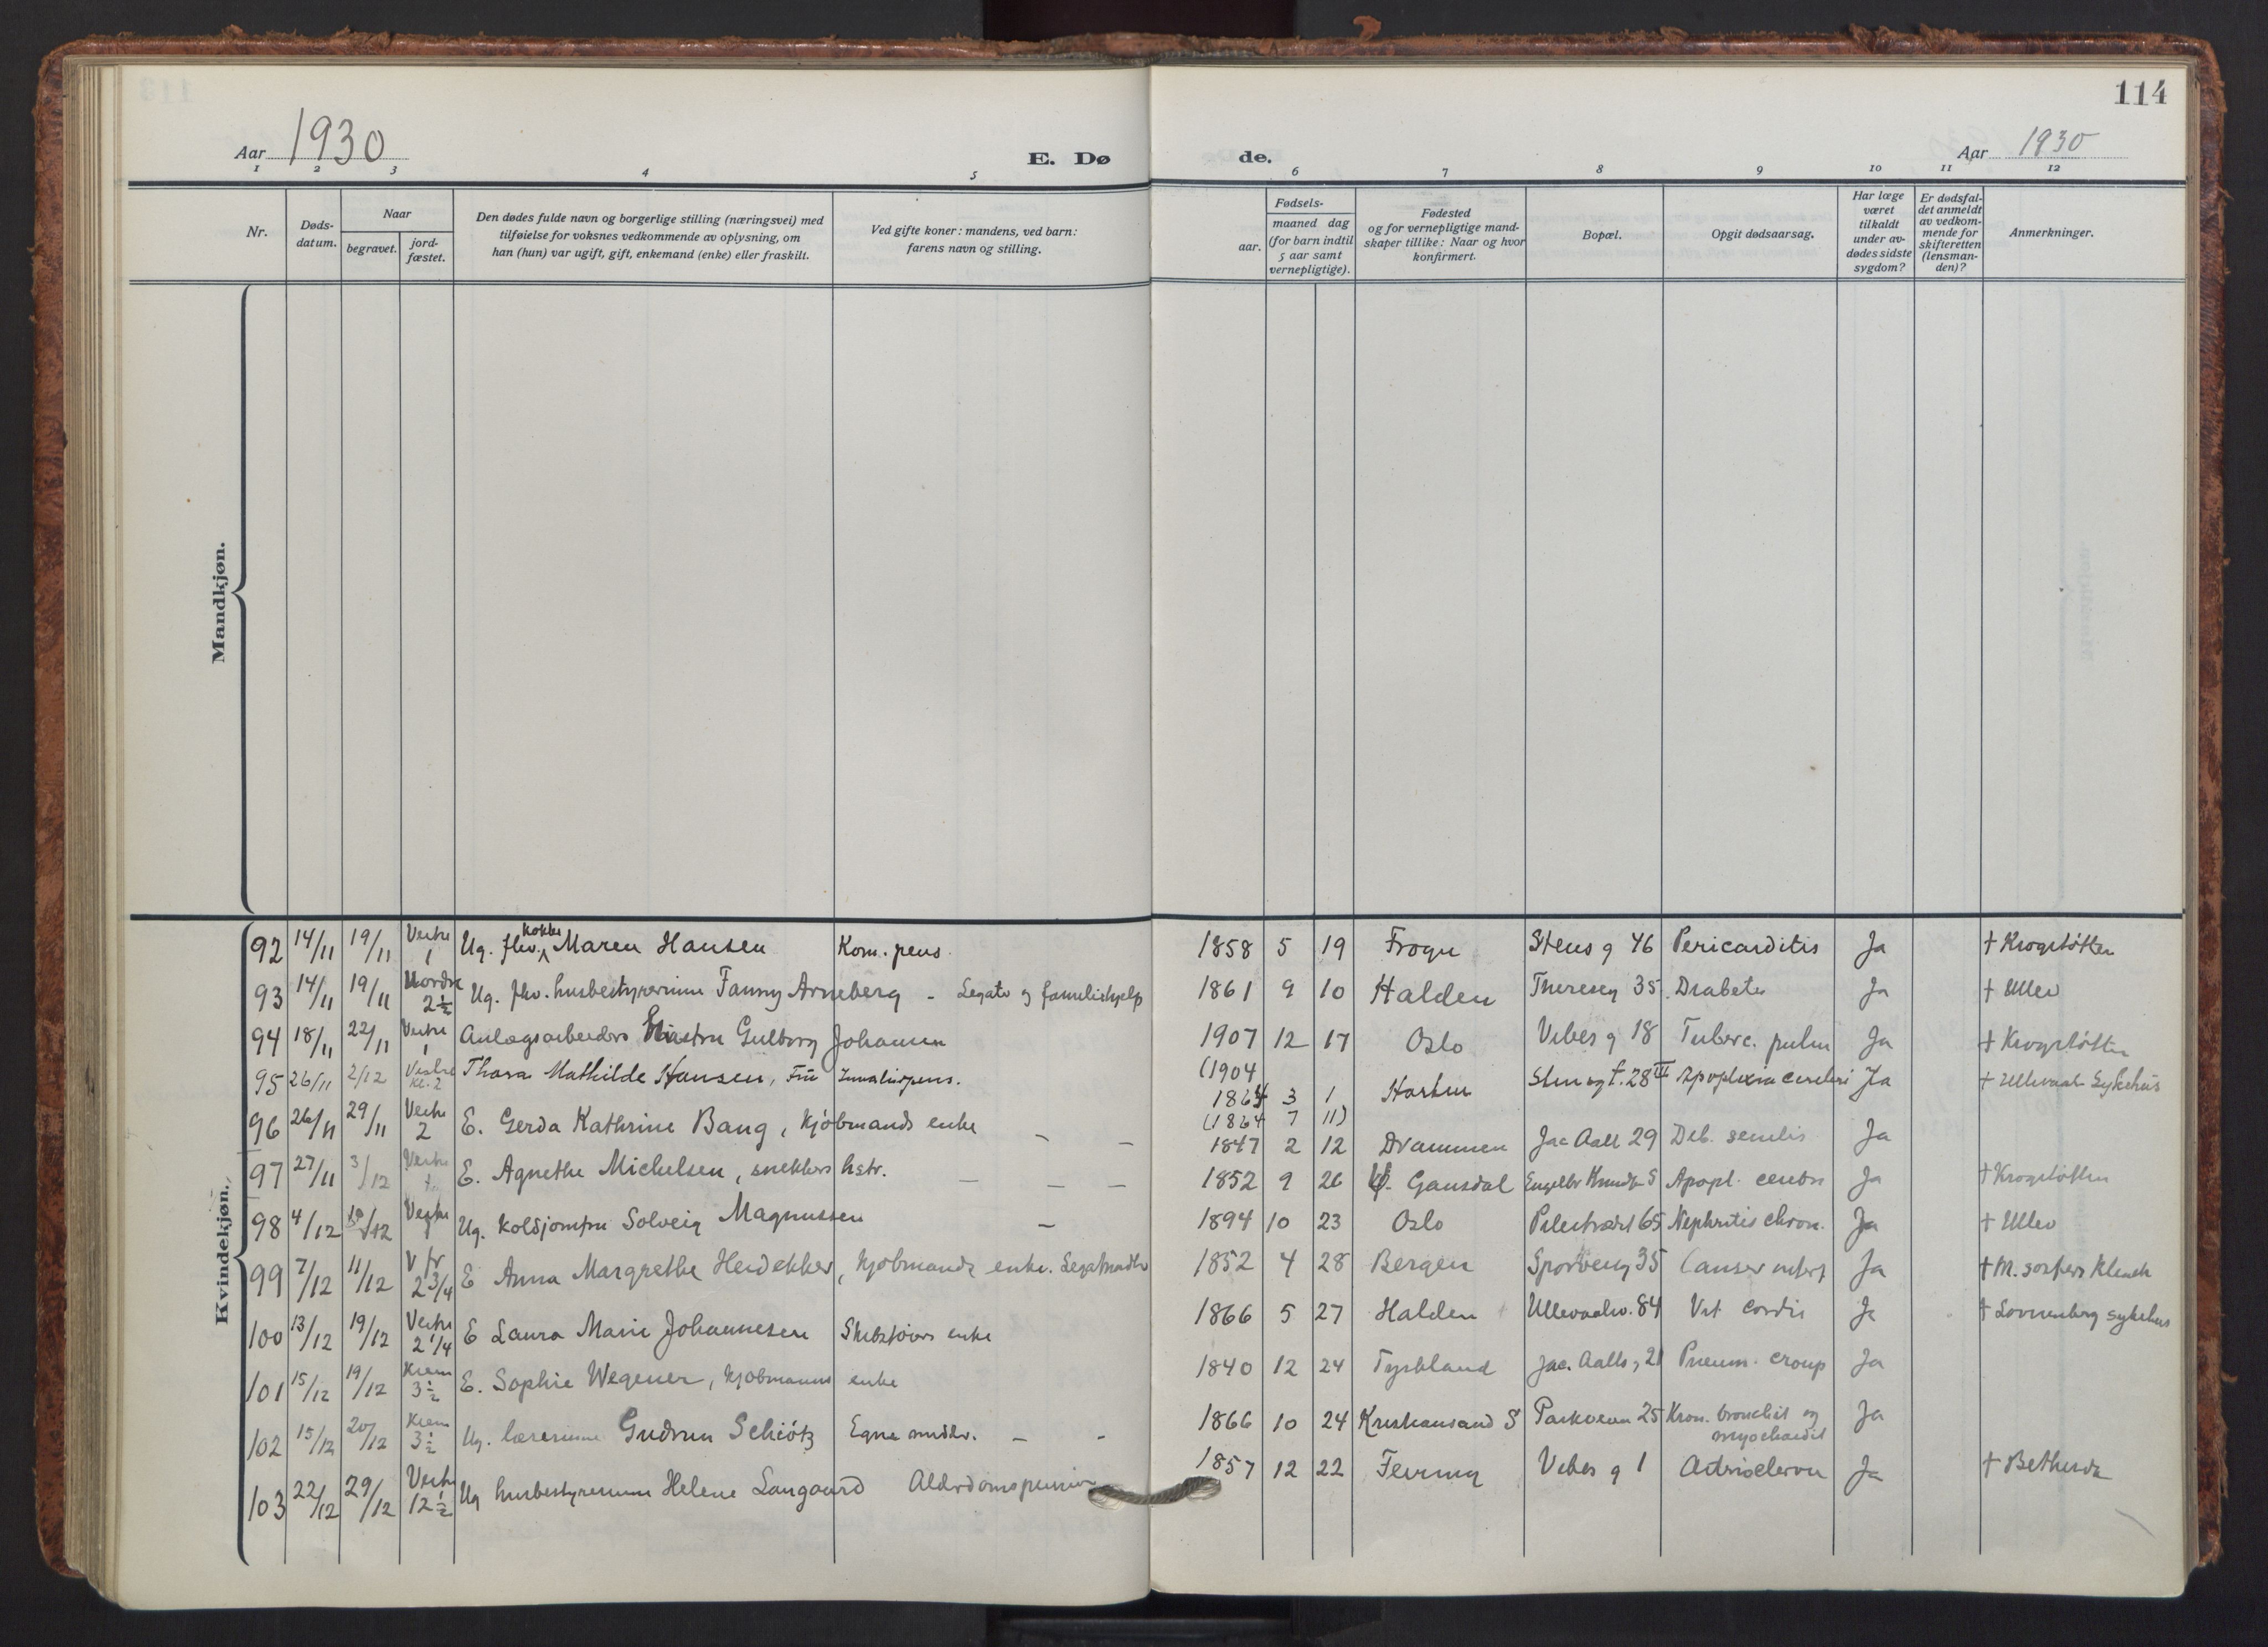 114
Aar 1930
E. Dø
de.
Aar 1930
1 2 3 4 5
6 7 8 9 10 11 12
Nr.
Døds-
datum.
Naar
begravet.
jord-
fæstet.
Den dødes fulde navn og borgerlige stilling (næringsvei) med
tilføielse for voksnes vedkommende av oplysning, om
han (hun) var ugift, gift, enkemand (enke) eller fraskilt.
Ved gifte koner: mandens, ved barn:
farens navn og stilling.
Fødsels-
aar.
maaned dag
(for barn indtil
5 aar samt
vernepligtige).
Fødested
og for vernepligtige mand-
skaper tillike: Naar og hvor
konfirmert.
Bopæl.
Opgit dødsaarsag.
Har læge
været
tilkaldt
under av-
dødes sidste
sygdom?
Er dødsfal-
det anmeldt
av vedkom-
mende for
skifteretten
(lensman-
den)?
Anmerkninger.
Mandkjøn.
Kvindekjøn.
92 14/11 19/11 Vestre 1 Ug. fhv. kokke Maren Hansen Kom. pens. 1858 5 19 Frogn Stens g 46 Pericarditis Ja † Krogstøtten
93 14/11 19/11 Nordre 2½ Ug. fhv. husbestyrerinne Fanny Arneberg - Legato og familiehjelp 1861 9 10 Halden Thereseg 35 Diabetes Ja † Ullev
94 18/11 22/11 Vestre 1 Anlægsarbeiders Gulborg Johansen 1907 12 17 Oslo Vibes g 18 Tuberc. pulm Ja † Krogstøtten
(1904
95 26/11 2/12 Vestre kl. 2 Thora Mathilde Hansen, Fru Invalidpens. 1864 3 1 28 III Apoplexia cerebri Ja † Ullevaal Sykehus
(1864 7 11)
96 26/11 29/11 Vestre 2 E. Gerda Kathrine Bang, kjøbmands enke - - 1847 2 12 Drammen Jac Aall 29 Deb. senilis Ja
97 27/11 3/12 Vestre E. Agnethe Michelsen, snekkers hstr. - - - 1852 9 26 Gausdal 5 Apopl. cerebri Ja † Krogstøtten
98 4/12 10/12 Vestre 1 Ug. koldjomfru Solveig Magnussen - 1894 10 23 Oslo Pilestrædet 65 Nephritis chron. Ja † Ullev
99 7/12 11/12 V fr 2 3/4 E Anna Margrethe Heidekker, kjøbmands enke. 1852 4 28 Bergen Sporveisg 35 Ja
100 13/12 19/12 Vestre 2 1/4 E Laura Marie Johannesen Skibsførers enke 1866 5 27 Halden Ullevaalsv. 84 Vit cordis Ja † Lovisenberg sykehus
101 15/12 19/12 Krem 3½ E. Sophie Wegener, kjøbmanns enke 1840 12 24 Tyskland Jac. Aalls, 21 Pneum. croup Ja
102 15/12 20/12 Krem 3½ Ug. lærerinne Gudrun Schiøtz Egne midler. - - 1866 10 24 Kristiansand S Parkveien 25 Kron. bronchit og
myocardit Ja
103 22/12 29/12 Vestre 12½ Ug husbestyrerinne Helene Langaard Alderdomspension 1857 12 22 Vibes g 1 Ja † Bethesda